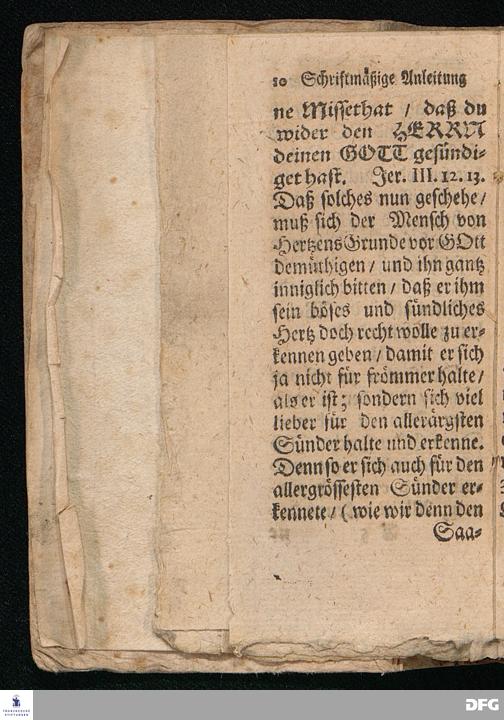 10 Schriftmäßige Anleitung
ne Missethat / daß du
wider den HERRN
deinen GOTT gesündi-
get hast. Jer. III. 12. 13.
Daß solches nun geschehe /
muß sich der Mensch von
Hertzens Grunde vor GOtt
demüthigen / und ihn gantz
inniglich bitten / daß er ihm
sein böses und sündliches
Hertz doch recht wolle zu er-
kennen geben / damit er sich
ja nicht für frömmer halte /
als er ist; sondern sich viel
lieber für den allerärgsten
Sünder halte und erkenne.
Denn so er sich auch für den
allergrössesten Sünder er-
kennete / ( wie wir denn den
Saa-
FRANCKESCHE
STIFTUNGEN
DFG